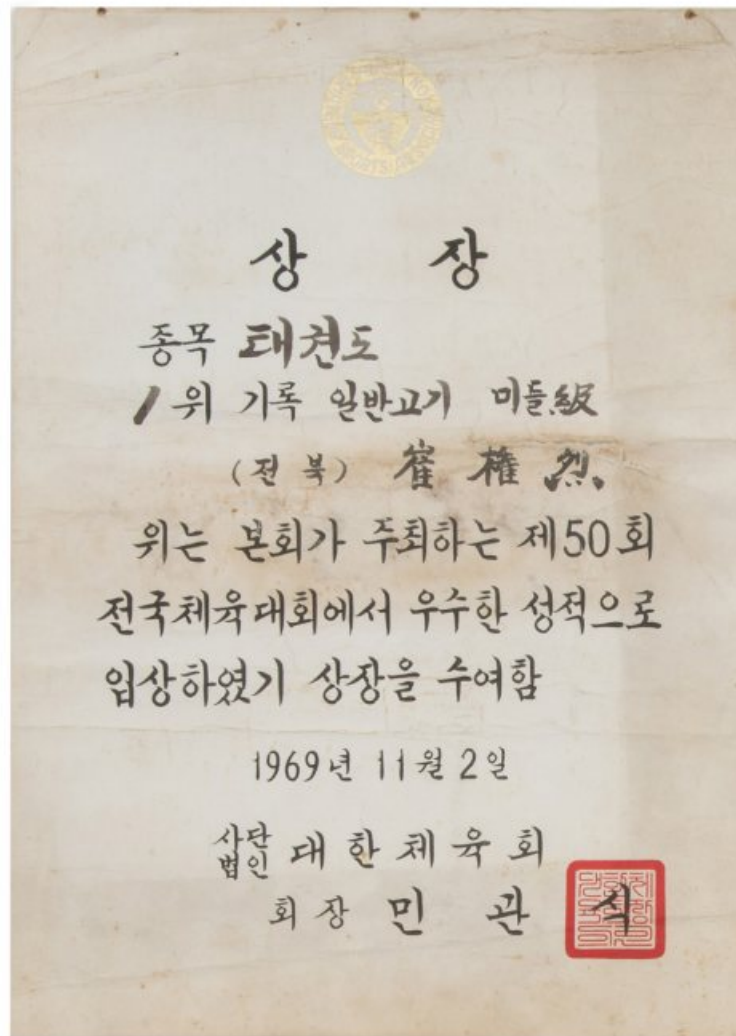 상 장
종목 태권도
1위 기록 일반고기 미들級
(전북) 崔權烈
위는 본회가 주최하는 제50회
전국체육대회에서 우수한 성적으로
입상하였기 상장을 수여함
1969년 11월 2일
사단법인 대한체육회
회장 민관식